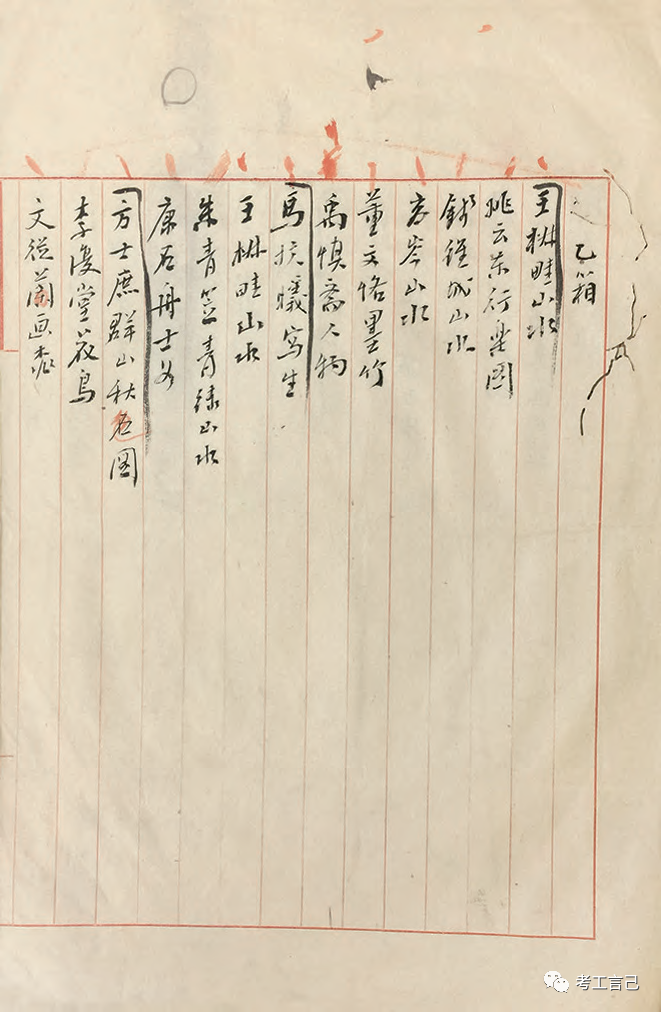 乙箱
王椒畦山水
姚云东行乐图
钱维城山水
高岑山水
董文恪墨竹
禹慎斋人物
馬扶曦写生
王椒畦山水
朱青笠青绿山水
康石舟士女
方士庶群山秋色图
李復堂花鸟
文從蕳画
考工言己